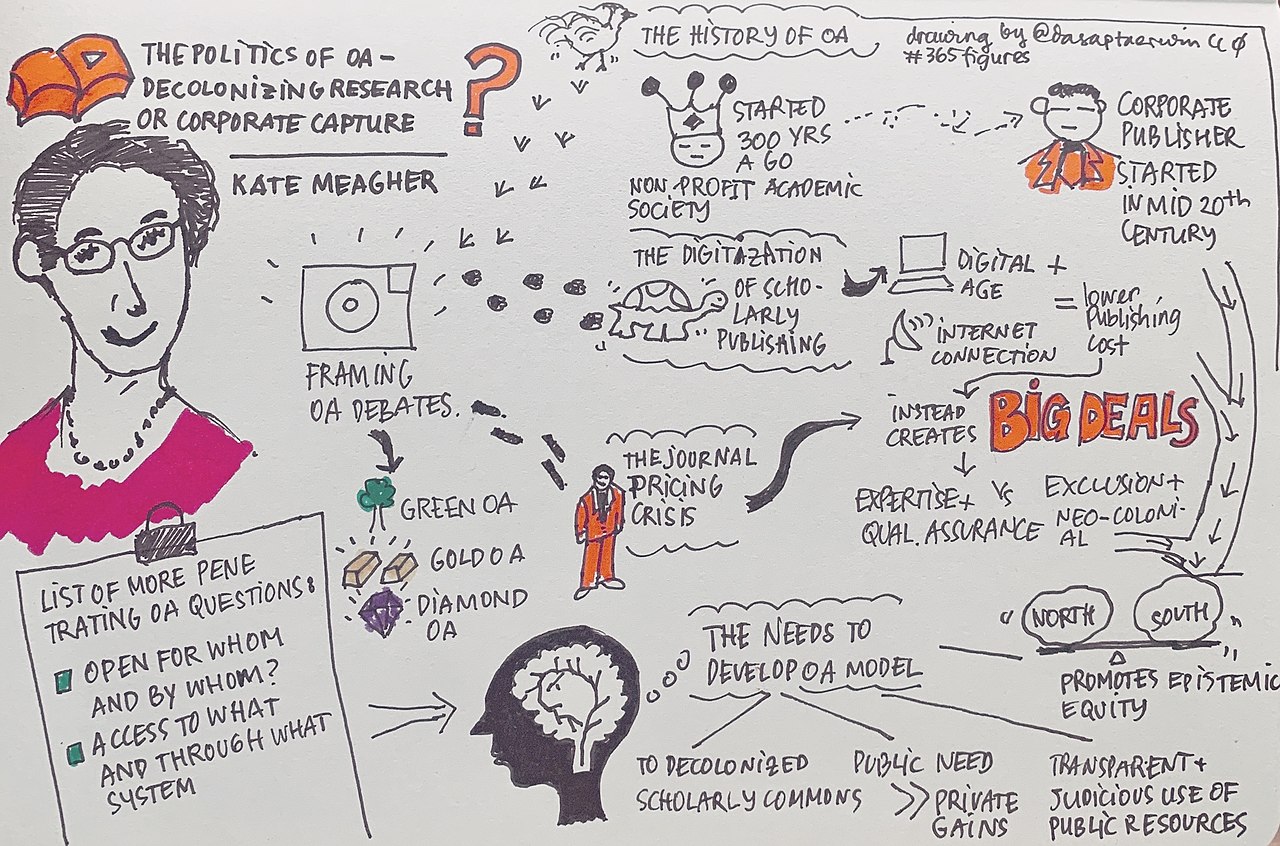 THE POLITICS OF OA –
DECOLONIZING RESEARCH
OR CORPORATE CAPTURE
?
KATE MEAGHER
THE HISTORY OF OA
drawing by @dasaptaerwin CC Ø
#365figures
STARTED
300 YRS
A GO
NON PROFIT ACADEMIC
SOCIETY
CORPORATE
PUBLISHER
STARTED
IN MID 20th
CENTURY
THE DIGITAZATION
OF SCHO-
LARLY
PUBLISHING
DIGITAL +
AGE
INTERNET
CONNECTION
= lower
Publishing
Cost
INSTEAD
CREATES
BIG DEALS
EXPERTISE +
QUAL. ASSURANCE
VS
EXCLUSION +
NEO-COLONI-
AL
FRAMING
OA DEBATES.
GREEN OA
GOLD OA
DIAMOND
OA
THE JOURNAL
PRICING
CRISIS
LIST OF MORE PENE
TRATING OA QUESTIONS:
OPEN FOR WHOM
AND BY WHOM?
ACCESS TO WHAT
AND THROUGH WHAT
SYSTEM
THE NEEDS TO
DEVELOP OA MODEL
NORTH
SOUTH
PROMOTES EPISTEMIC
EQUITY
TO DECOLONIZED
SCHOLARLY COMMONS
PUBLIC NEED
>> PRIVATE
GAINS
TRANSPARENT +
JUDICIOUS USE OF
PUBLIC RESOURCES